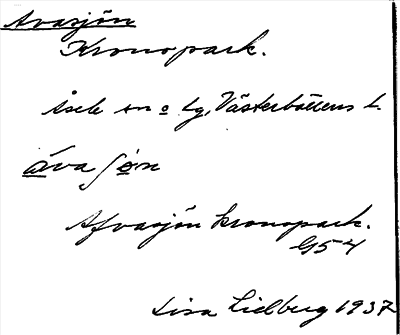 Avasjön
Kronopark.
Åsele sn o lg, Västerbottens l.
Afvasjön kronopark.
G54
Lisa Lidberg 1937